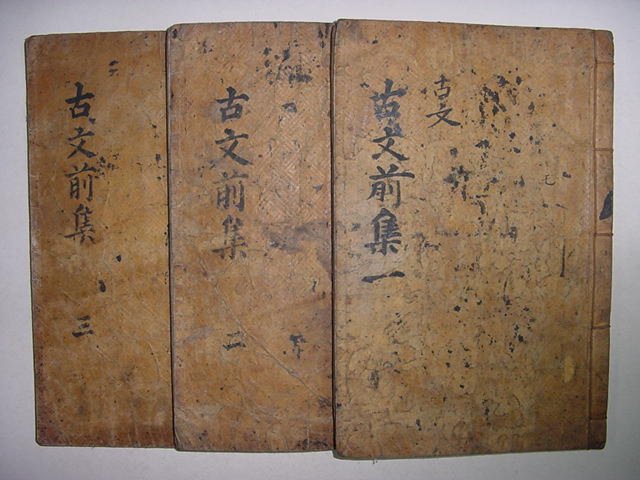 古文前集一
古文
古文前集
二
古文前集
三